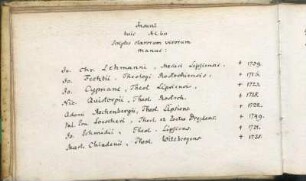 Insunt
huic Albo
Scripta clarorum virorum
manus:
Io. Chr. Lehmanni, Medici Lipsiens. + 1739.
Io. Fechtii, Theologi Rostochiensis. + 1716.
Io. Cypriani, Theol. Lipsiensis, + 1723.
Nic. Quistorpii, Theol. Rostoch. + 1715.
Adami Rechenbergii, Theol. Lipsiens + 1721.
Val. Ern. Loescheri, Theol. et Dresdens. + 1749.
Io. Schmidii, Theol. Lipsiens. + 1731.
Mart. Chladenii, Theol. Wittebergens + 1725.